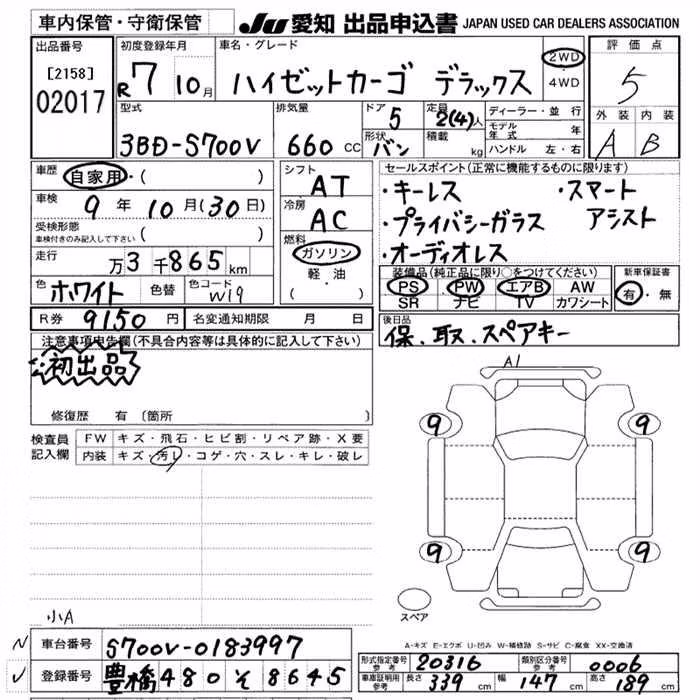 車内保管・守衛保管
JU 愛知 出品申込書 JAPAN USED CAR DEALERS ASSOCIATION
出品番号
[2158]
02017
初度登録年月
R7 10月
車名・グレード
ハイゼットカーゴ デラックス
2WD
・
4WD
評価点
5
外装 内装
A B
型式
3BD-S700V
排気量
660 CC
ドア
5
形状
バン
定員
2(4)人
積載
kg
ディーラー・並行
モデル年式 年
ハンドル 左・右
車歴
自家用・( )
車検
9年10月(30日)
受検形態
車検付きのみ記入して下さい ( )
走行
万3千865km
色
ホワイト
色替
色コード
W19
シフト
AT
冷房
AC
燃料
ガソリン
軽・油
( )
セールスポイント(正常に機能するものに限ります)
・キーレス ・スマート
・プライバシーガラス アシスト
・オーディオレス
装備品(純正品に限り○をつけてください)
PS PW エアB AW
SR ナビ TV カワシート
新車保証書
有・無
R券 9150円
名変通知期限 月 日
後日品
保、取、スペアキー
注意事項申告欄(不具合内容等は具体的に記入して下さい)
初出品
修復歴 有〔箇所
検査員
記入欄
FW キズ・飛石・ヒビ割・リペア跡・X要
内装 キズ・汚レ・コゲ・穴・スレ・キレ・破レ
A1
9 9
9 9
スペア
小A
A-キズ E-エクボ U-凹み W-補修跡 S-サビ C-腐食 XX-交換済
N 車台番号 S700V-0183997
✓ 登録番号 豊橋480そ8645
形式指定番号
参考
20316
類別区分番号
参考
0006
車庫証明用
参考
長さ 339cm 幅 147cm 高さ 189cm